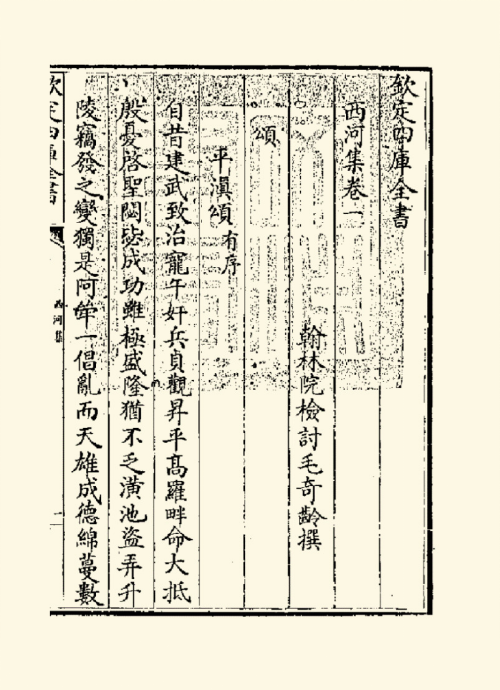 欽定四庫全書
西河集卷一
翰林院檢討毛奇齡撰
頌
平滇頌有序
自昔建武致治寵午奸兵貞觀昇平髙羅畔命大抵
殷憂啓聖閟毖成功雖極盛隆猶不乏潢池盜弄升
陵竊發之變獨是阿犖一倡亂而天雄成德綿蔓數
欽定四庫全書
西河集
一